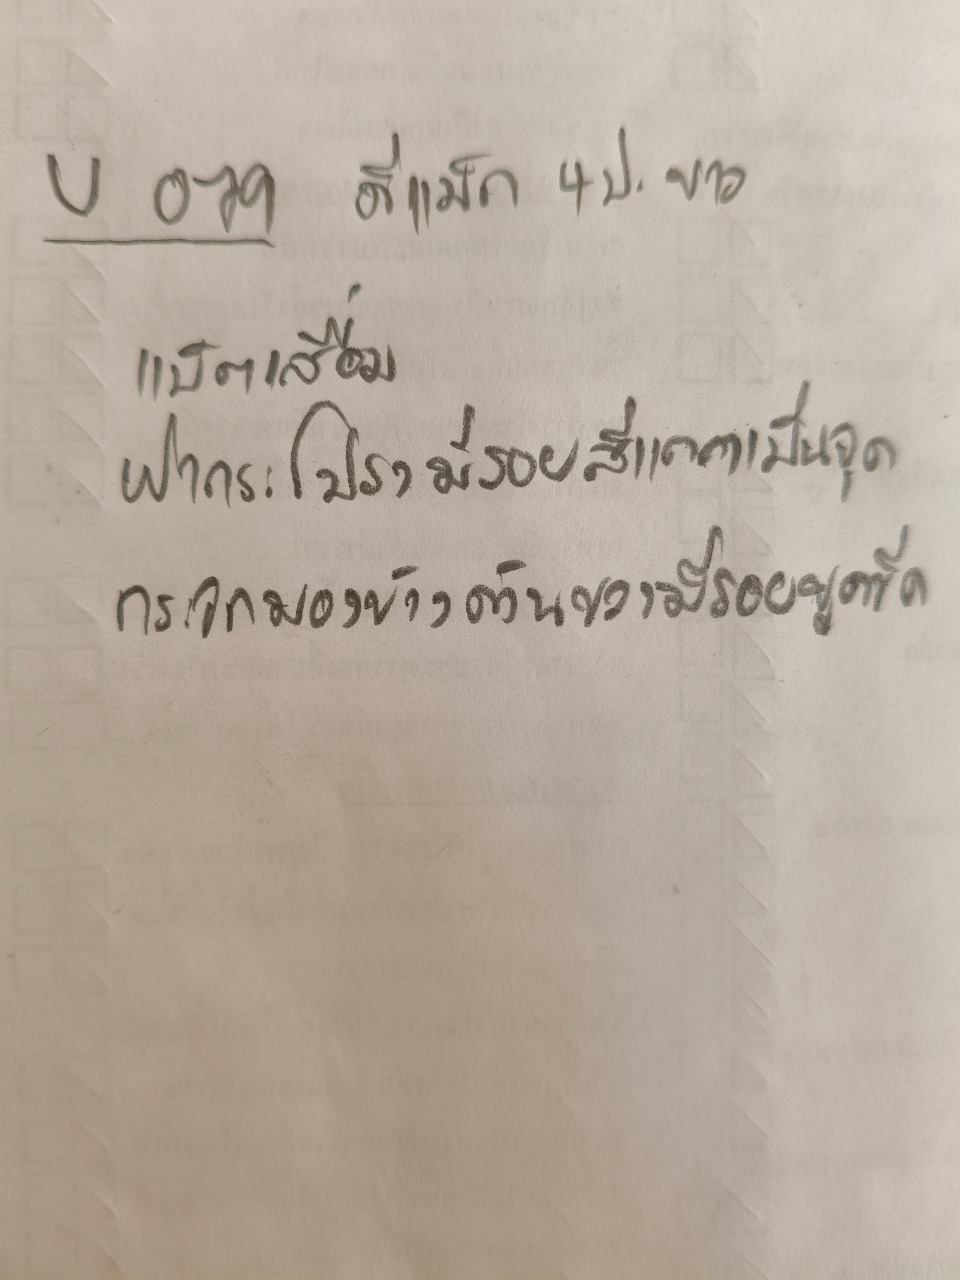 ดีแม็ก 4 ป. ขาว
แบ็ตเสื่อม
ฝากระโปรงมีรอยสีแตกเป็นจุด
กระจกมองข้างด้านขวามีรอยขูดขีด